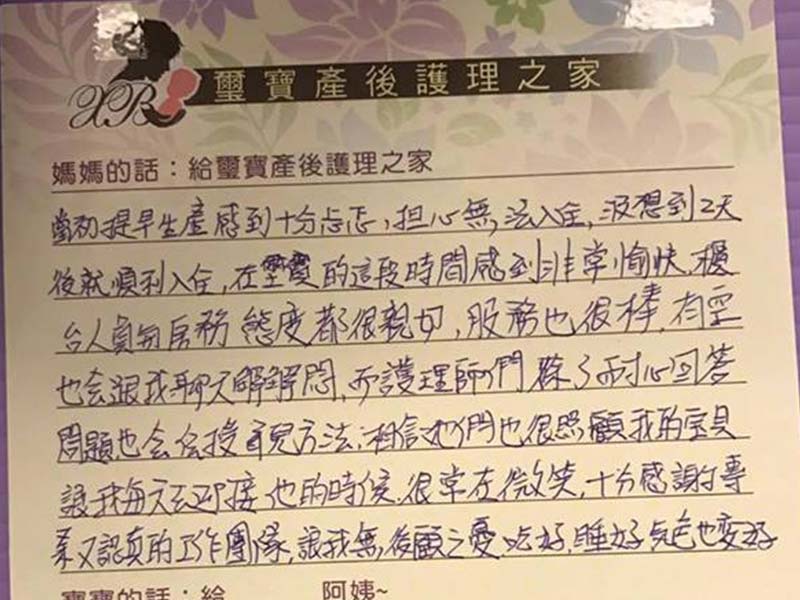 XB 璽寶產後護理之家
媽媽的話：給璽寶產後護理之家
當初提早生產感到十分忐忑，担心無法入住，沒想到2天
後就順利入住，在璽寶的這段時間感到非常愉快，櫃
台人員與房務態度都很親切，服務也很棒，有空
也会跟我聊天解解悶，而護理師們除了耐心回答
問題也会傳授育兒方法，相信她們也很照顧我的宝貝
讓我每天去迎接他的時候，很常在微笑，十分感謝專
業又認真的工作團隊，讓我無後顧之憂，吃好，睡好氣色也变好
寶寶的話：給 阿姨~